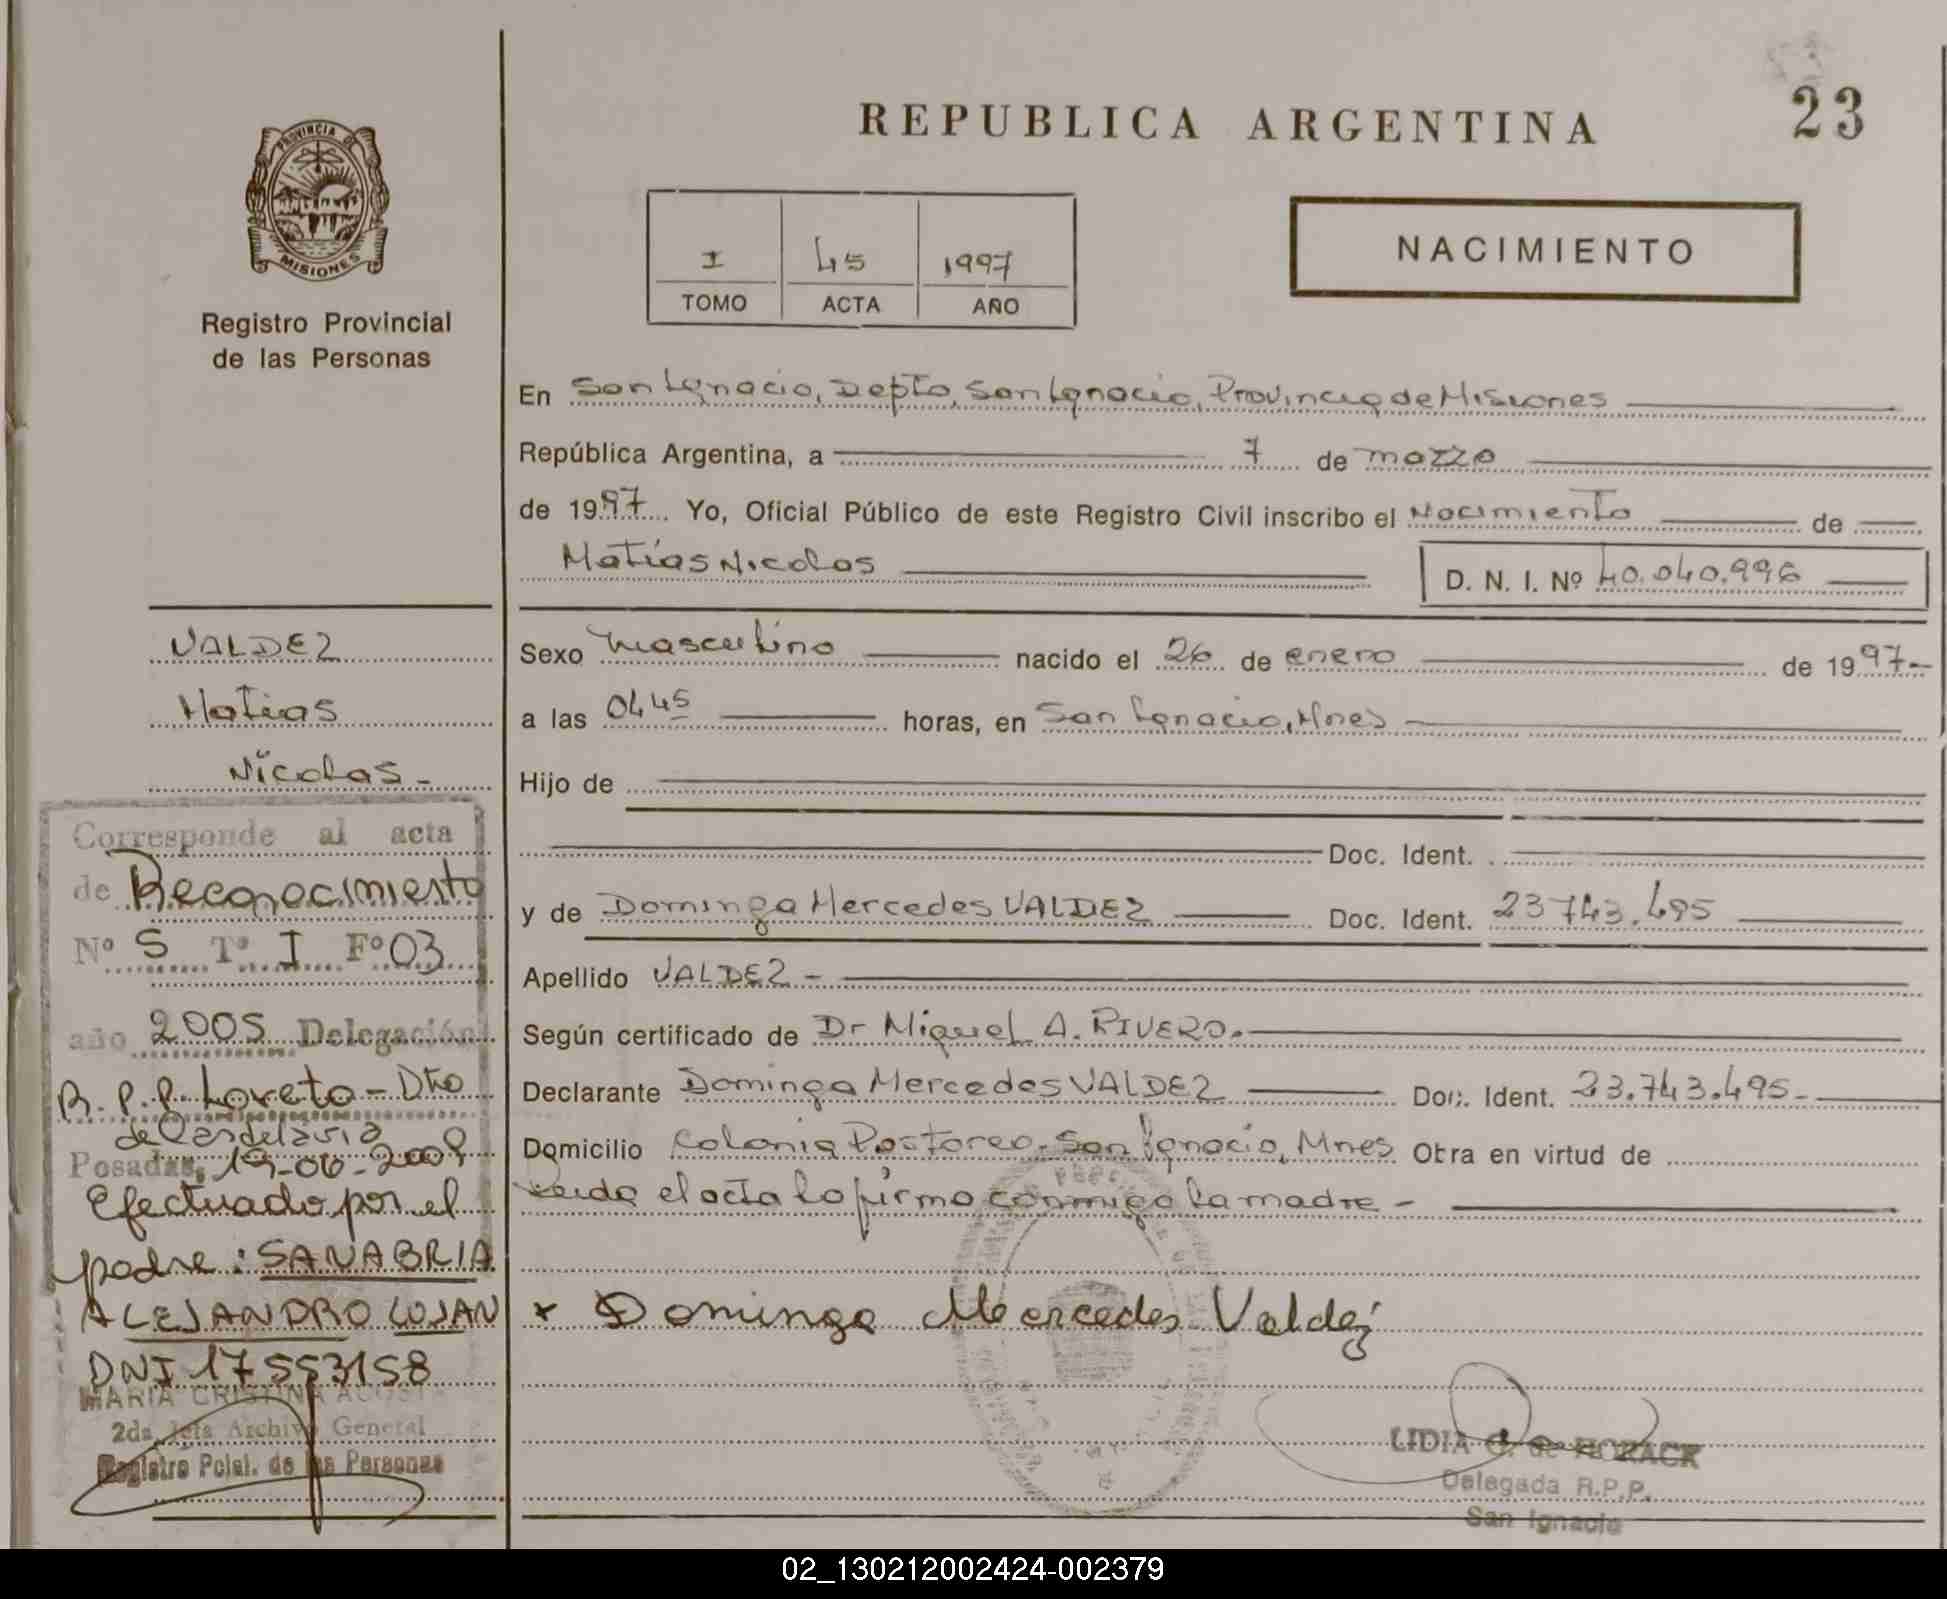 REPUBLICA ARGENTINA
23
PROVINCIA DE
MISIONES
Registro Provincial
de las Personas
I 45 1997
TOMO ACTA AÑO
NACIMIENTO
En San Ignacio, Depto, San Ignacio, Provincia de Misiones
República Argentina, a 7 de marzo
de 1997 Yo, Oficial Público de este Registro Civil inscribo el Nacimiento de
Matías Nicolas D. N. I. Nº 40.040.996
Sexo Masculino nacido el 26 de enero de 1997-
a las 0445 horas, en San Ignacio, Mnes
Hijo de
Doc. Ident.
y de Dominga Mercedes VALDEZ Doc. Ident. 23743.495
Apellido VALDEZ -
Según certificado de Dr Miguel A. RIVERO.
Declarante Dominga Mercedes VALDEZ Doc. Ident. 23.743.495-
Domicilio Colonia Pastoreo - San Ignacio, Mnes Obra en virtud de
Leida el acta la firma conmigo la madre -
x Dominga Mercedes Valdez
LIDIA de HORACK
Delegada R.P.P.
San Ignacio
VALDEZ
Matias
Nicolas -
Corresponde al acta
de Reconocimiento
Nº 5 Tº I Fº 03
año 2005 Delegación
R.P.P. Loreto - Dto
de Candelaria
Posadas, 19-06-2008
Efectuado por el
padre: SANABRIA
ALEJANDRO LUJAN
DNI 17553158
MARIA CRISTINA
2da. Jefa Archivo General
Registro Pcial. de las Personas
02_130212002424-002379